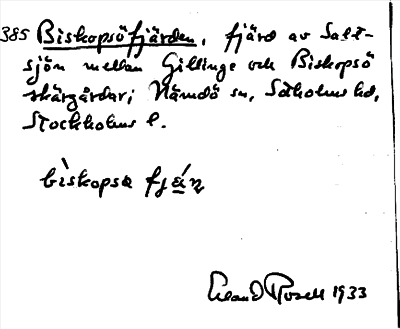 385 Biskopsöfjärden, fjärd av Salt-
sjön mellan Gillinge och Biskopsö
skärgårdar; Nämdö sn, Sotholms hd,
Stockholms l.
bìskopsə fjǽɳ
Erland Rosell 1933